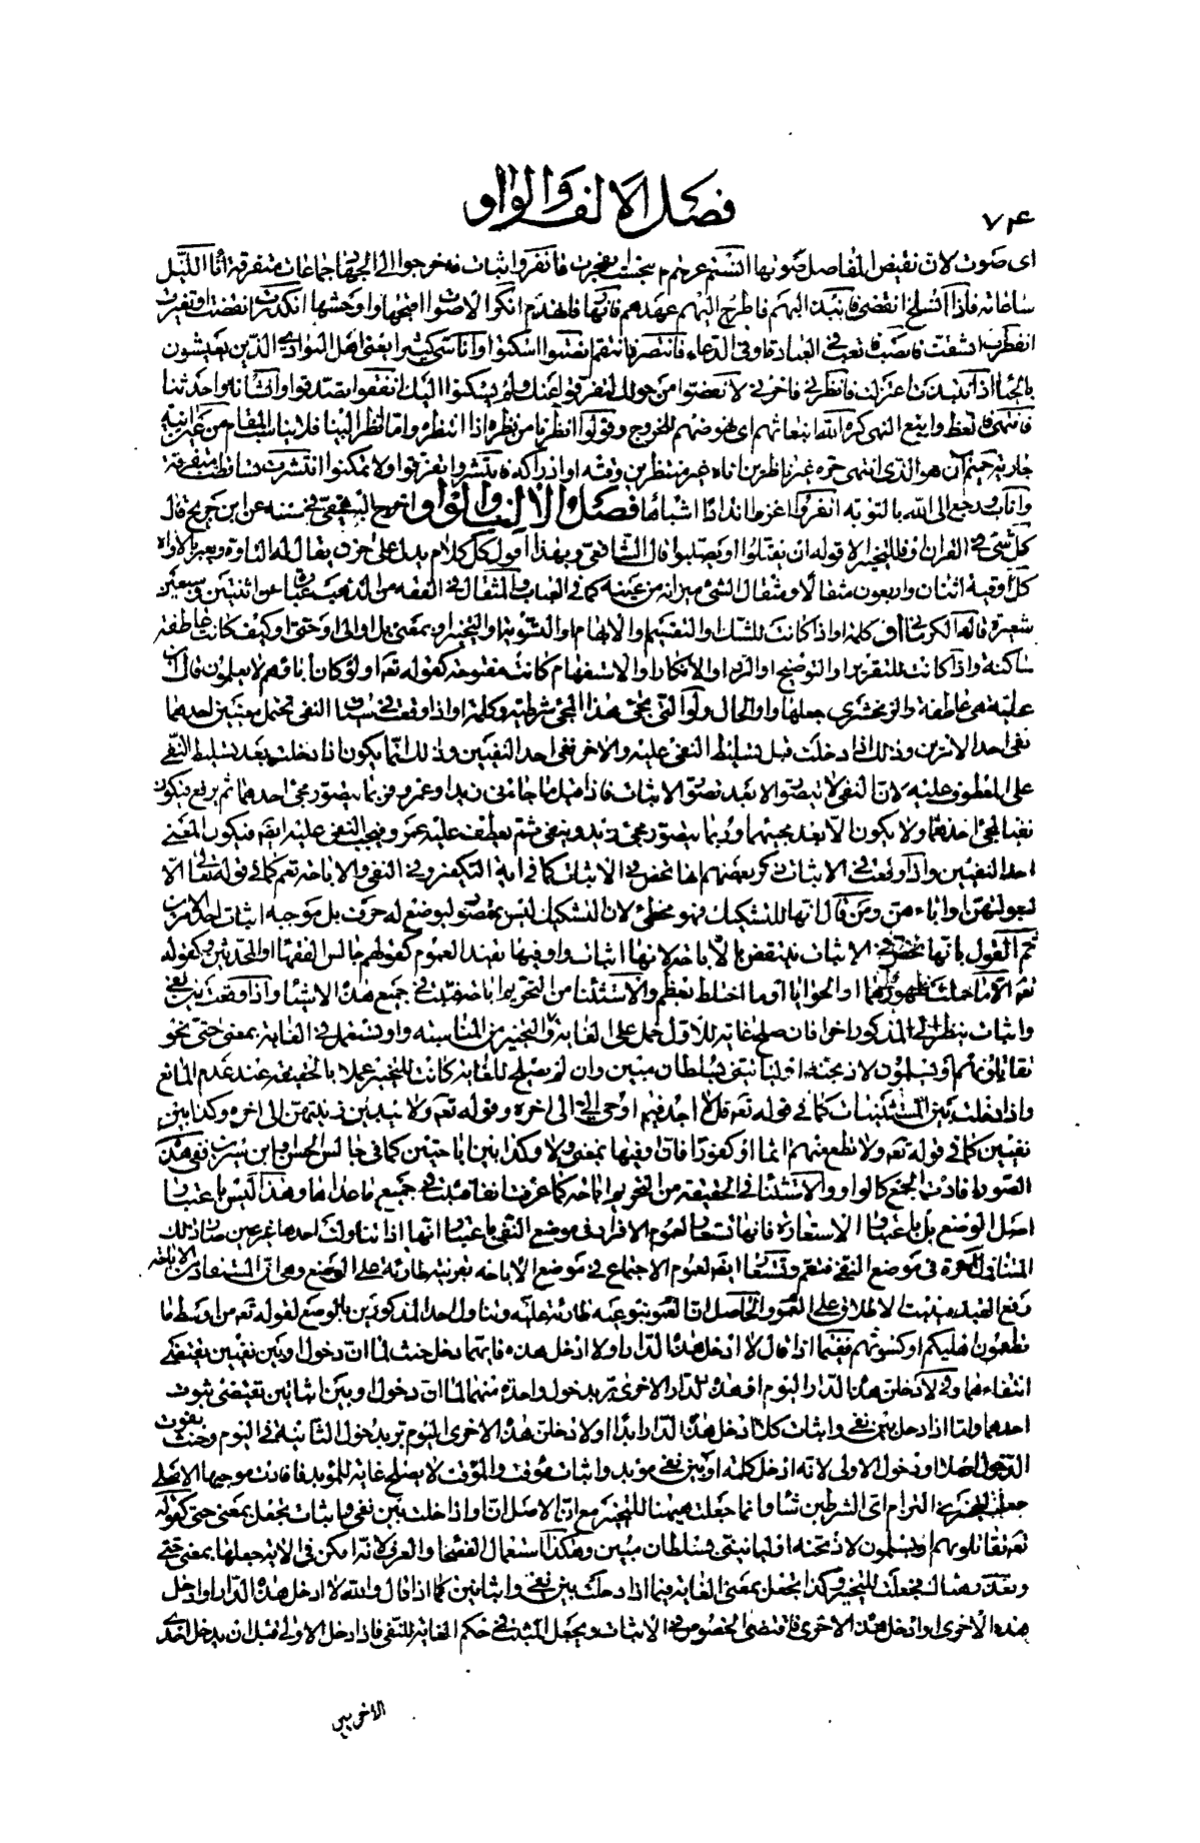 فصل الالف والواو
٧٤
اى صوت لان نقيض المفاصل صوتها انفجرت فانفروا ثبات فاخرجوا الى الجهاد جماعات متفرقة آناء الليل
ساعاته فاذا انسلخ انقضى فانبذ اليهم فاطرح اليهم عهدهم فانهار فانهدم انكر الاصوات اقبحها واوحشها انكدرت انقضت او تغيرت
انفطرت انشقت فانصب فاتعب فى العبادة او فى الدعاء فانتصر فانتقم انصتوا اسكتوا واناسى كثيرا يعنى اهل البوادى الذين يعيشون
بالحيا اذ انتبذت اعتزلت فانظرنى فاخرنى لانفضوا من حولك لتفرقوا عنك ولم يسكنوا اليك
فانتهى فاتعظ واتبع النهى كره الله انبعاثهم اى نهوضهم للخروج وقولوا انظرنا من نظره اذا انتظره
حميم آن هو الذى انتهى حره غير ناظرين اناه غير منتظرين وقته او ادراكه فانتشروا تفرقوا ولا تمكثوا انتثرت تساقطت متفرقة
واناب ورجع الى الله بالتوبة انفروا اغزوا اندادا اشباها فصل الالف والواو اخرج البيهقى فى سننه عن ابن جريج قال
كل شئ فى القرآن او فللتخيير الا قوله ان يقتلوا او يصلبوا قال الشافعى وبهذا اقول كل كلام يدل على حزن يقال له التأوه ويعبر بالاواه
كل اوقية اثنان واربعون مثقالا ومثقال الشئ ميزانه من عينه كما فى العباب والمثقال فى الفقه من الذهب عبارة عن اثنتين وسبعين
شعيرة قاله الكرمانى او كلمة او اذا كانت للشك والتقسيم والابهام والتسوية والتخيير او بمعنى بل او الى او حتى او كيف كانت عاطفة
ساكنة واذا كانت للتقرير او التوضيح او الرد او الانكار او الاستفهام كانت مفتوحة كقوله تعـ اولو كان آباؤهم لا يعلمون
عليه هى عاطفة والزمخشرى جعلها واو الحال ولو التى تجئ هذا المجئ شرطية وكلمة او اذا وقعت فى سياق النفى تحتمل معنيين احدهما
نفى احد الامرين وذلك اذا دخلت قبل تسليط النفى عليه والآخر نفى احد النفيين وذلك انما يكون اذا دخلت بعد تسليط النفى
على المعطوف عليه لان النفى لا يتصور الا بعد تصور الاثبات فاذا قيل ما جاءنى زيد او عمرو فربما يتصور مجئ احدهما ثم يرفع فيكون
نفيا لمجئ احدهما ولا يكون الا بعد مجيئهما وربما يتصور مجئ زيد وينفى ثم يعطف عليه عمرو فيجب النفى عليه ايضا فيكون المعنى
احد النفيين واذا وقعت فى الاثبات ذكر بعضهم انها تخص فى الاثبات كما فى آية التكفير وفى النفى والاباحة تعم كما فى قوله تعالى الا
لبعولتهن او آباءهن ومن قال انها للتشكيك فهو مخطئ لان التشكيك ليس بمقصود ليوضع له حرف بل موجبه اثبات احد الامرين
ثم القول بانها تخص فى الاثبات ينتقض بالاباحة لانها اثبات واو فيها تفيد العموم كقولهم جالس الفقهاء او المحدثين وكقوله
تعـ الا ما حملت ظهورهما او الحوايا او ما اختلط بعظم والاستثناء من التحريم اباحة فثبتت فى جميع هذه الاشياء واذا وقعت بين نفى
واثبات ينظر الى المذكور آخرا فان صلح غاية للاول حمل على الغاية والتخيير من المناسبة واو تستعمل فى الغاية بمعنى حتى نحو
تقاتلونهم او يسلمون لاذبحنه او ليأتينى بسلطان مبين وان لم يصلح للغاية كانت للتخيير عملا بالحقيقة عند عدم المانع
واذا دخلت بين المستثنيات كما فى قوله تعـ قل لا اجد فيما اوحى الى الى آخره وقوله تعـ ولا يبدين زينتهن الى آخره وكذا بين
نفيين كما فى قوله تعـ ولا تطع منهم آثما او كفورا فان او فيها بمعنى ولا وكذا بين اباحتين كما فى جالس الحسن او ابن سيرين ففى هذه
الصور افادت الجمع كالواو والاستثناء فى الحقيقة من التحريم اباحة كما عرفت آنفا فثبتت فى جميع ما عداها وهذا ليس باعتبار
اصل الوضع بل باعتبار الاستعارة فانها تستعار لعموم الافراد فى موضع النفى باعتبار انها اذا تناولت احدها غير عين صار ذلك
المتناول نكرة فى موضع النفى فتعم وتستعار ايضا لعموم الاجتماع فى موضع الاباحة بقرينة طارئة على الوضع وهى ان المستفاد من الاباحة
رفع القيد فيثبت الاطلاق على العموم والحاصل ان العموم بنوعيه طارئة عليه وتناول احد المذكورين بالوضع لقوله تعـ من اوسط ما
تطعمون اهليكم او كسوتهم ففيما اذا قال لا ادخل هذه الدار او لا ادخل هذه فايهما دخل حنث لما ان دخول او بين نفيين يقتضى
انتفاءهما وفى لادخلن هذه الدار اليوم او هذه الدار الاخرى بر بدخول واحدة منهما لما ان دخول او بين اثباتين يقتضى ثبوت
احدهما واما اذا دخل بين نفى واثبات كلا ادخل هذه الدار ابدا او لادخلن هذه الاخرى اليوم بر بدخول الثانية فى اليوم وحنث بفوت
الدخول اصلا او دخول الاولى لانه ادخل كلمة او بين نفى مؤبد واثبات مؤقت والمؤقت لا يصلح غاية للمؤبد فافادت موجبها الاصلى
جعلت للتخيير فى التزام اى الشرطين شاء
تعـ تقاتلونهم او يسلمون لاذبحنه او ليأتينى بسلطان مبين وهكذا استعمال الفصحاء والعرف لانه امكن فى الآية جعلها بمعنى حتى
وتعذر هنا فجعلت للتخيير وكذا تجعل بمعنى الغاية فيما اذا دخلت بين نفى واثباتين كما اذا قال والله لا ادخل هذه الدار او ادخل
هذه الاخرى او ادخل هذه الاخرى فاقتضى الخصوص فى الاثبات ويجعل المثبت فى حكم الغاية للنفى فاذا دخل الاولى قبل ان يدخل احدى
الاخريين